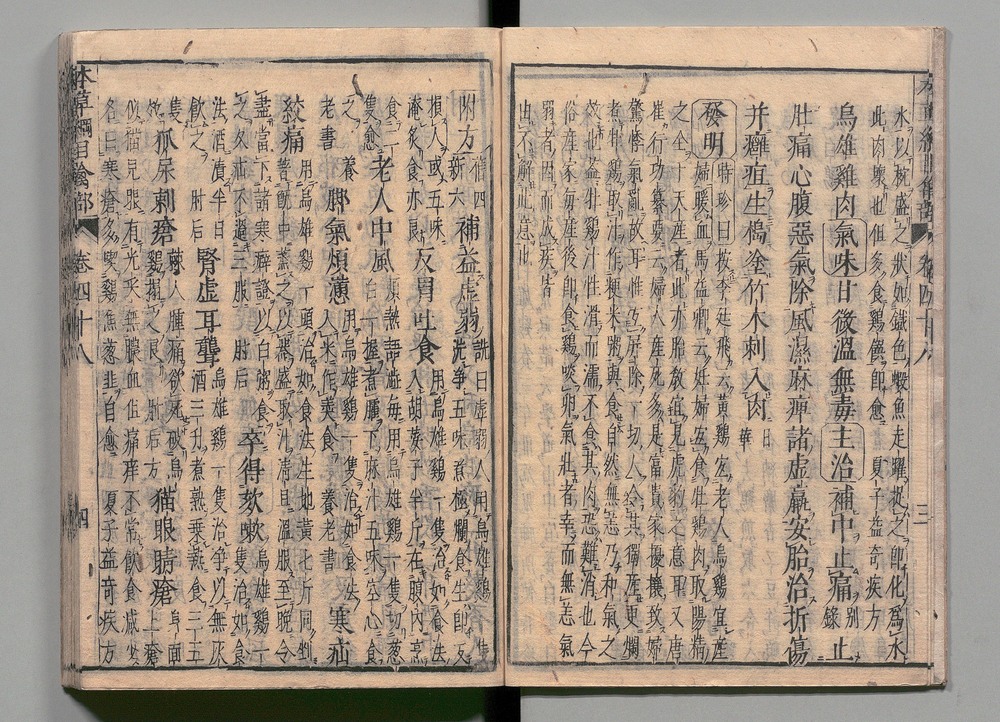 水以碗盛之狀如鐵色蝦魚走躍捉之卽化爲水
此肉壞也但多食鷄饌卽愈 夏子益奇疾方
烏雄雞肉氣味甘微溫無毒主治補中止痛別錄止
肚痛心腹惡氣除風濕麻痺諸虛羸安胎治折傷
并癰疽生搗塗竹木刺入肉日華
發明時珍曰按李廷飛云黃鷄宜老人烏鷄宜產
婦暖血馬益卿云妊婦宜食牡鷄肉取陽精
之全于天產者此亦胎教宜見虎豹之意耳又唐
崔行功纂要云婦人產死多是富貴家擾攘致婦
驚悸氣亂故耳惟宜屏除一切人令其獨產更爛
煮牡鷄取汁作粳米粥與食自然無恙乃和氣之
效也蓋牡鷄汁性滑而濡不食其肉恐難消也今
俗產家每產後卽食鷄啖卵氣壯者幸而無恙氣
弱者因而成疾皆由不解此意也
附方舊四新六補益虛弱詵曰虛弱人用烏雄鷄一隻
治淨五味煮極爛食生卽反損人或五味
淹炙食亦良反胃吐食用烏雄鷄一隻治如食法
入胡荽子半斤在腹內烹食二隻愈老人中風煩熱語澁每用烏雄鷄一隻切葱
白一握煮臛下麻汁五味空心食之養老書脚氣煩懣用烏雄鷄一隻治如食
法入米作羹食養老書寒疝絞痛用烏雄鷄一頭治如食法生地黃七斤同剉
著甑中蒸之以器盛取汁淸旦溫服至晚令
盡當下諸寒癖訖以白粥食之久疝不過三服肘后卒得欬嗽烏雄鷄一隻治如食
法酒漬半日飲之肘后腎虛耳聾烏雄鷄一隻治淨以無灰
酒三升煮熟乘熱食三五隻效狐尿刺瘡棘人腫痛欲死破烏鷄搨之良肘后方猫眼睛瘡身面上瘡
似猫兒眼有光采無膿血但痛痒不常飲食減少
名曰寒瘡多喫鷄魚葱韭自愈 夏子益奇疾方
本草綱目禽部 卷四十八 三
本草綱目禽部 卷四十八 四